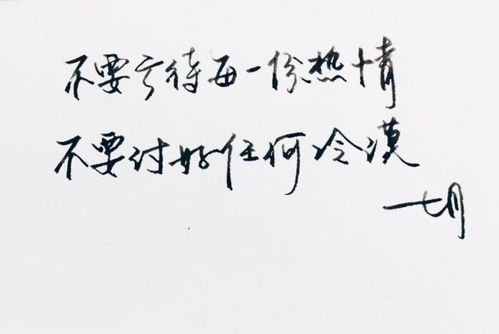 不要亏待每一份热情
不要讨好任何冷漠
七月